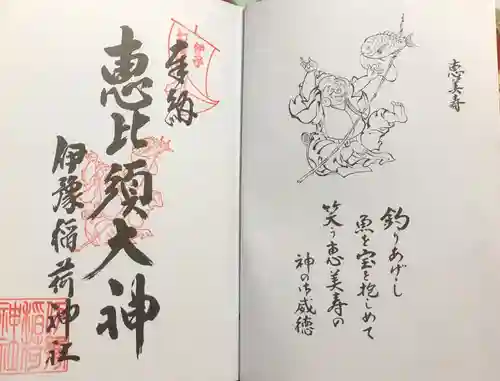 恵美寿
釣りあげし
魚を宝と抱しめて
笑う恵美寿の
神の御威徳
奉納
恵比須大神
伊豫稲荷神社